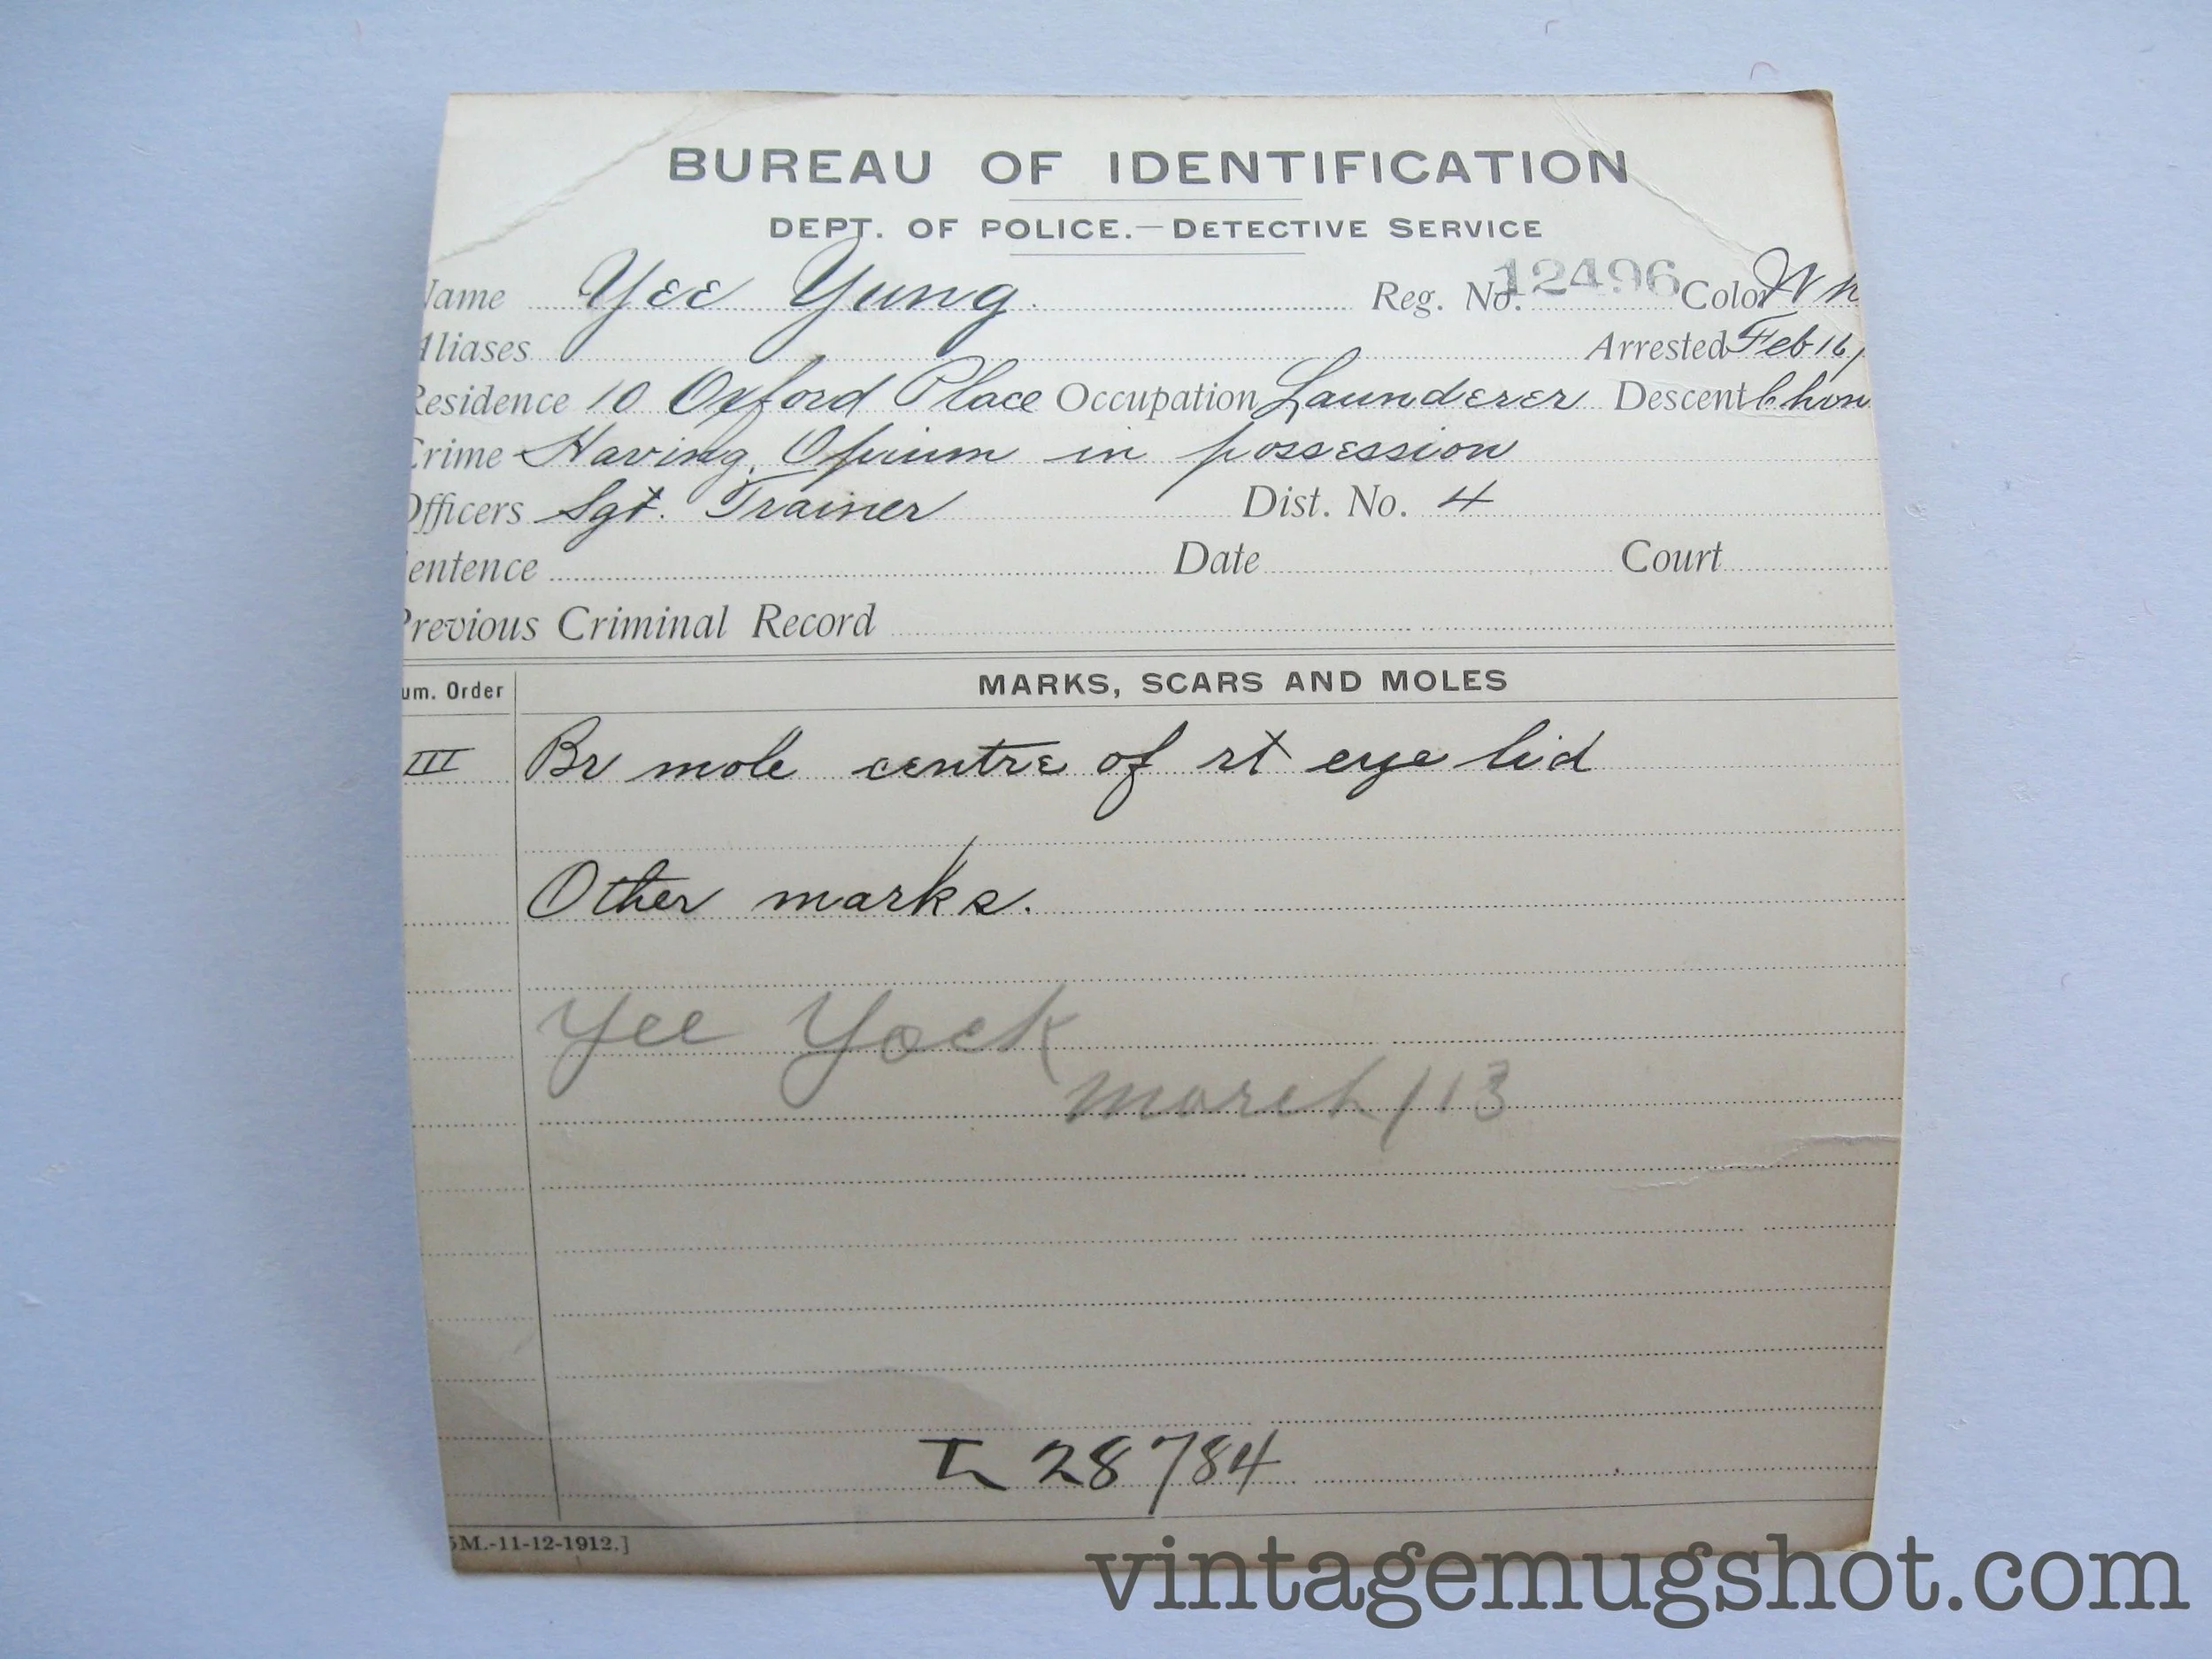 BUREAU OF IDENTIFICATION
DEPT. OF POLICE.—DETECTIVE SERVICE
Name Yee Yung. Reg. No. 12496 Color Wh
Aliases Arrested Feb 16,
Residence 10 Oxford Place Occupation Launderer Descent
Crime Having Opium in possession
Officers Sgt. Trainer Dist. No. 4
entence Date Court
Previous Criminal Record
um. Order MARKS, SCARS AND MOLES
III Br mole centre of rt eye lid
Other marks.
Yee Yock
March / 13
28784
5M.-11-12-1912.]
vintagemugshot.com